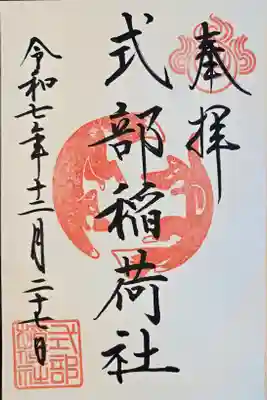 奉拝
式部稲荷社
令和七年十二月二十七日
式部
稲荷社